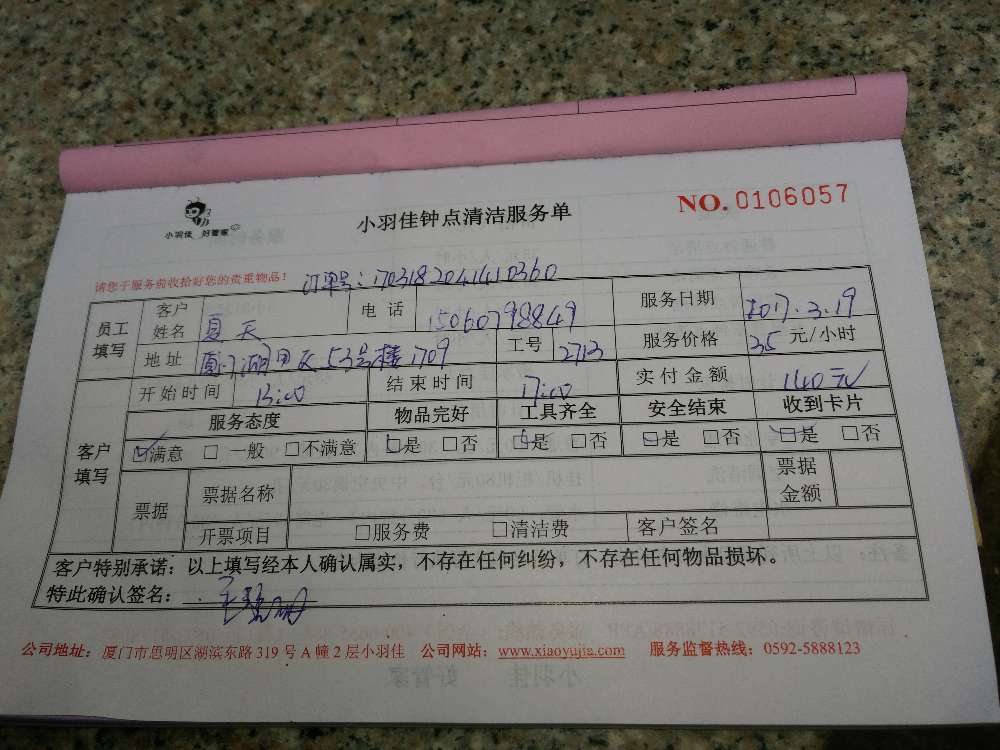 小羽佳 好管家
小羽佳钟点清洁服务单
NO.0106057
请您于服务前收拾好您的贵重物品！
订单号：1703182041410360
员工填写 客户姓名 夏天 电话 15060798849 服务日期 2017.3.19
地址 厦门湖 53号楼1709 工号 2713 服务价格 35 元/小时
客户填写 开始时间 13:00 结束时间 17:00 实付金额 140元
服务态度 物品完好 工具齐全 安全结束 收到卡片
☑满意 □一般 □不满意 ☑是 □否 ☑是 □否 ☑是 □否 ☑是 □否
票据 票据名称 票据金额
开票项目 □服务费 □清洁费 客户签名
客户特别承诺：以上填写经本人确认属实，不存在任何纠纷，不存在任何物品损坏。
特此确认签名：
公司地址：厦门市思明区湖滨东路319号A幢2层小羽佳 公司网站：www.xiaoyujia.com 服务监督热线：0592-5888123